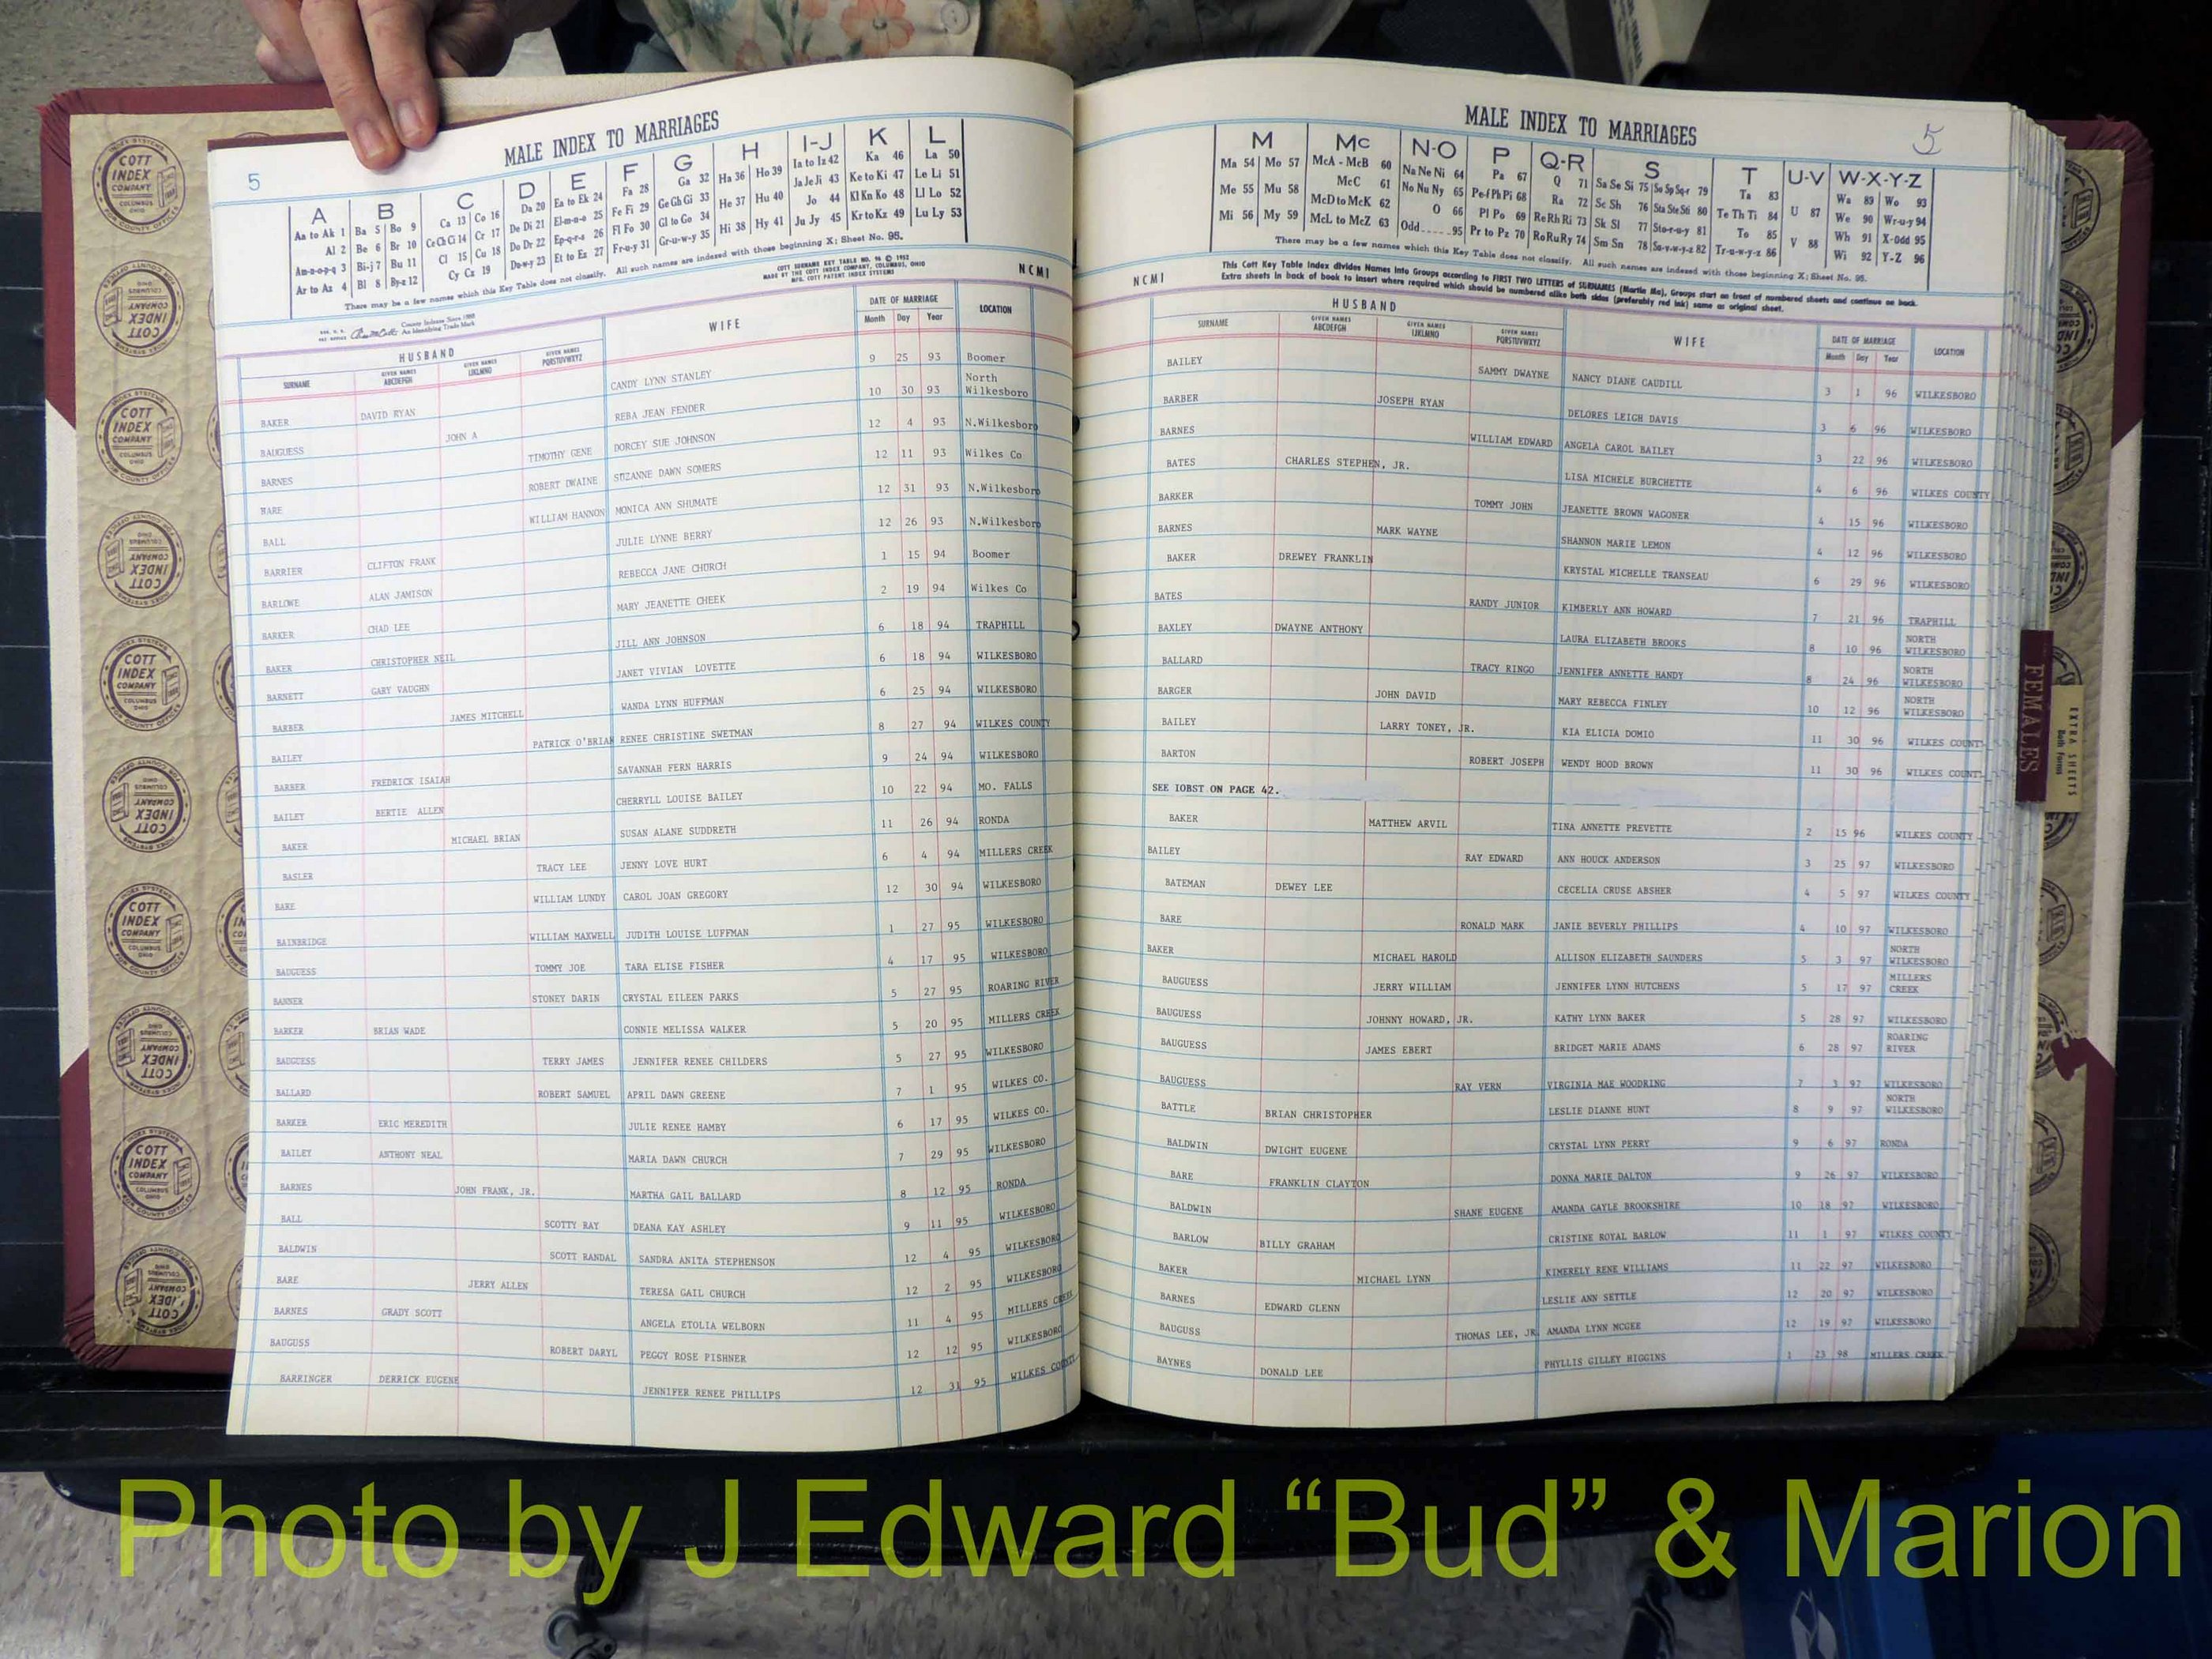 5
MALE INDEX TO MARRIAGES
A B C D E F G H I-J K L
Aa to Ak 1 Ba 5 Bo 9 Ca 13 Co 16 Da 20 Ea to Ek 24 Fa 28 Ga 32 Ha 36 Ho 39 Ia to Iz 42 Ka 46 La 50
Al 2 Be 6 Br 10 Ce Ch Ci 14 Cr 17 De Di 21 El-m-n-o 25 Fe Fi 29 Ge Gh Gi 33 He 37 Hu 40 Ja Je Ji 43 Ke to Ki 47 Le Li 51
Am-n-o-p-q 3 Bi-j 7 Bu 11 Cl 15 Cu 18 Do Dr 22 Ep-q-r-s 26 Fl Fo 30 Gl to Go 34 Hi 38 Hy 41 Jo 44 Kl Kn Ko 48 Ll Lo 52
Ar to Az 4 Bl 8 By-z 12 Cy Cz 19 Du-w-y 23 Et to Ez 27 Fr-u-y 31 Gr-u-w-y 35 Ju Jy 45 Kr to Kz 49 Lu Ly 53
There may be a few names which this Key Table does not classify. All such names are indexed with those beginning X; Sheet No. 95.
COTT SURNAME KEY TABLE NO. 96 © 1952
MADE BY THE COTT INDEX COMPANY, COLUMBUS, OHIO
MFG. COTT PATENT INDEX SYSTEMS
NCMI
County Indexes Since 1888
An Identifying Trade Mark
HUSBAND WIFE DATE OF MARRIAGE LOCATION
SURNAME GIVEN NAMES ABCDEFGH GIVEN NAMES IJKLMNO GIVEN NAMES PQRSTUVWXYZ Month Day Year
BAKER DAVID RYAN CANDY LYNN STANLEY 9 25 93 Boomer
BAUGUESS JOHN A REBA JEAN FENDER 10 30 93 North Wilkesboro
BARNES TIMOTHY GENE DORCEY SUE JOHNSON 12 4 93 N.Wilkesboro
BARE ROBERT DWAINE SUZANNE DAWN SOMERS 12 11 93 Wilkes Co
BALL WILLIAM HANNON MONICA ANN SHUMATE 12 31 93 N.Wilkesboro
BARRIER CLIFTON FRANK JULIE LYNNE BERRY 12 26 93 N.Wilkesboro
BARLOWE ALAN JAMISON REBECCA JANE CHURCH 1 15 94 Boomer
BARKER CHAD LEE MARY JEANETTE CHEEK 2 19 94 Wilkes Co
BAKER CHRISTOPHER NEIL JILL ANN JOHNSON 6 18 94 TRAPHILL
BARNETT GARY VAUGHN JANET VIVIAN LOVETTE 6 18 94 WILKESBORO
BARBER JAMES MITCHELL WANDA LYNN HUFFMAN 6 25 94 WILKESBORO
BAILEY PATRICK O'BRIAN RENEE CHRISTINE SWETMAN 8 27 94 WILKES COUNTY
BARBER FREDRICK ISAIAH SAVANNAH FERN HARRIS 9 24 94 WILKESBORO
BAILEY BERTIE ALLEN CHERRYLL LOUISE BAILEY 10 22 94 MO. FALLS
BAKER MICHAEL BRIAN SUSAN ALANE SUDDRETH 11 26 94 RONDA
BASLER TRACY LEE JENNY LOVE HURT 6 4 94 MILLERS CREEK
BARE WILLIAM LUNDY CAROL JOAN GREGORY 12 30 94 WILKESBORO
BAINBRIDGE WILLIAM MAXWELL JUDITH LOUISE LUFFMAN 1 27 95 WILKESBORO
BAUGUESS TOMMY JOE TARA ELISE FISHER 4 17 95 WILKESBORO
BANNER STONEY DARIN CRYSTAL EILEEN PARKS 5 27 95 ROARING RIVER
BARKER BRIAN WADE CONNIE MELISSA WALKER 5 20 95 MILLERS CREEK
BAUGUESS TERRY JAMES JENNIFER RENEE CHILDERS 5 27 95 WILKESBORO
BALLARD ROBERT SAMUEL APRIL DAWN GREENE 7 1 95 WILKES CO.
BARKER ERIC MEREDITH JULIE RENEE HAMBY 6 17 95 WILKES CO.
BAILEY ANTHONY NEAL MARIA DAWN CHURCH 7 29 95 WILKESBORO
BARNES JOHN FRANK, JR. MARTHA GAIL BALLARD 8 12 95 RONDA
BALL SCOTTY RAY DEANA KAY ASHLEY 9 11 95 WILKESBORO
BALDWIN SCOTT RANDAL SANDRA ANITA STEPHENSON 12 4 95 WILKESBORO
BARE JERRY ALLEN TERESA GAIL CHURCH 12 2 95 WILKESBORO
BARNES GRADY SCOTT ANGELA ETOLIA WELBORN 11 4 95 MILLERS CREEK
BAUGUSS ROBERT DARYL PEGGY ROSE PISHNER 12 12 95 WILKESBORO
BARRINGER DERRICK EUGENE JENNIFER RENEE PHILLIPS 12 31 95 WILKES COUNTY
MALE INDEX TO MARRIAGES
5
M Mc N-O P Q-R S T U-V W-X-Y-Z
Ma 54 Mo 57 McA - McB 60 Na Ne Ni 64 Pa 67 Q 71 Sa Se Si 75 So Sp Sq-r 79 Ta 83 U 87 Wa 89 Wo 93
Me 55 Mu 58 McC 61 No Nu Ny 65 Pe-f Ph Pi 68 Ra 72 Sc Sh 76 Sta Ste Sti 80 Te Th Ti 84 V 88 We 90 Wr-u-y 94
Mi 56 My 59 McD to McK 62 O 66 Pl Po 69 Re Rh Ri 73 Sk Sl 77 Sto-r-u-y 81 To 85 Wh 91 X-Odd 95
McL to McZ 63 Odd 95 Pr to Pz 70 Ro Ru Ry 74 Sm Sn 78 Su-v-w-y-z 82 Tr-u-w-y-z 86 Wi 92 Y-Z 96
There may be a few names which this Key Table does not classify. All such names are indexed with those beginning X; Sheet No. 95.
This Cott Key Table Index divides Names into Groups according to FIRST TWO LETTERS of SURNAMES (Martin Ma), Groups start on front of numbered sheets and continue on back.
Extra sheets in back of book to insert where required which should be numbered alike both sides (preferably red ink) same as original sheet.
NCMI
HUSBAND WIFE DATE OF MARRIAGE LOCATION
SURNAME GIVEN NAMES ABCDEFGH GIVEN NAMES IJKLMNO GIVEN NAMES PQRSTUVWXYZ Month Day Year
BAILEY SAMMY DWAYNE NANCY DIANE CAUDILL 3 1 96 WILKESBORO
BARBER JOSEPH RYAN DELORES LEIGH DAVIS 3 6 96 WILKESBORO
BARNES WILLIAM EDWARD ANGELA CAROL BAILEY 3 22 96 WILKESBORO
BATES CHARLES STEPHEN, JR. LISA MICHELE BURCHETTE 4 6 96 WILKES COUNTY
BARKER TOMMY JOHN JEANETTE BROWN WAGONER 4 15 96 WILKESBORO
BARNES MARK WAYNE SHANNON MARIE LEMON 4 12 96 WILKESBORO
BAKER DREWEY FRANKLIN KRYSTAL MICHELLE TRANSEAU 6 29 96 WILKESBORO
BATES RANDY JUNIOR KIMBERLY ANN HOWARD 7 21 96 TRAPHILL
BAXLEY DWAYNE ANTHONY LAURA ELIZABETH BROOKS 8 10 96 NORTH WILKESBORO
BALLARD TRACY RINGO JENNIFER ANNETTE HANDY 8 24 96 NORTH WILKESBORO
BARGER JOHN DAVID MARY REBECCA FINLEY 10 12 96 NORTH WILKESBORO
BAILEY LARRY TONEY, JR. KIA ELICIA DOMIO 11 30 96 WILKES COUNTY
BARTON ROBERT JOSEPH WENDY HOOD BROWN 11 30 96 WILKES COUNTY
SEE IOBST ON PAGE 42.
BAKER MATTHEW ARVIL TINA ANNETTE PREVETTE 2 15 96 WILKES COUNTY
BAILEY RAY EDWARD ANN HOUCK ANDERSON 3 25 97 WILKESBORO
BATEMAN DEWEY LEE CECELIA CRUSE ABSHER 4 5 97 WILKES COUNTY
BARE RONALD MARK JANIE BEVERLY PHILLIPS 4 10 97 WILKESBORO
BAKER MICHAEL HAROLD ALLISON ELIZABETH SAUNDERS 5 3 97 NORTH WILKESBORO
BAUGUESS JERRY WILLIAM JENNIFER LYNN HUTCHENS 5 17 97 MILLERS CREEK
BAUGUESS JOHNNY HOWARD, JR. KATHY LYNN BAKER 5 28 97 WILKESBORO
BAUGUESS JAMES EBERT BRIDGET MARIE ADAMS 6 28 97 ROARING RIVER
BAUGUESS RAY VERN VIRGINIA MAE WOODRING 7 3 97 WILKESBORO
BATTLE BRIAN CHRISTOPHER LESLIE DIANNE HUNT 8 9 97 NORTH WILKESBORO
BALDWIN DWIGHT EUGENE CRYSTAL LYNN PERRY 9 6 97 RONDA
BARE FRANKLIN CLAYTON DONNA MARIE DALTON 9 26 97 WILKESBORO
BALDWIN SHANE EUGENE AMANDA GAYLE BROOKSHIRE 10 18 97 WILKESBORO
BARLOW BILLY GRAHAM CRISTINE ROYAL BARLOW 11 1 97 WILKES COUNTY
BAKER MICHAEL LYNN KIMERELY RENE WILLIAMS 11 22 97 WILKESBORO
BARNES EDWARD GLENN LESLIE ANN SETTLE 12 20 97 WILKESBORO
BAUGUSS THOMAS LEE, JR. AMANDA LYNN MCGEE 12 19 97 WILKESBORO
BAYNES DONALD LEE PHYLLIS GILLEY HIGGINS 1 23 98 MILLERS CREEK
FEMALES
EXTRA SHEETS
Both Forms
COTT INDEX COMPANY
COLUMBUS OHIO
Photo by J Edward “Bud” & Marion